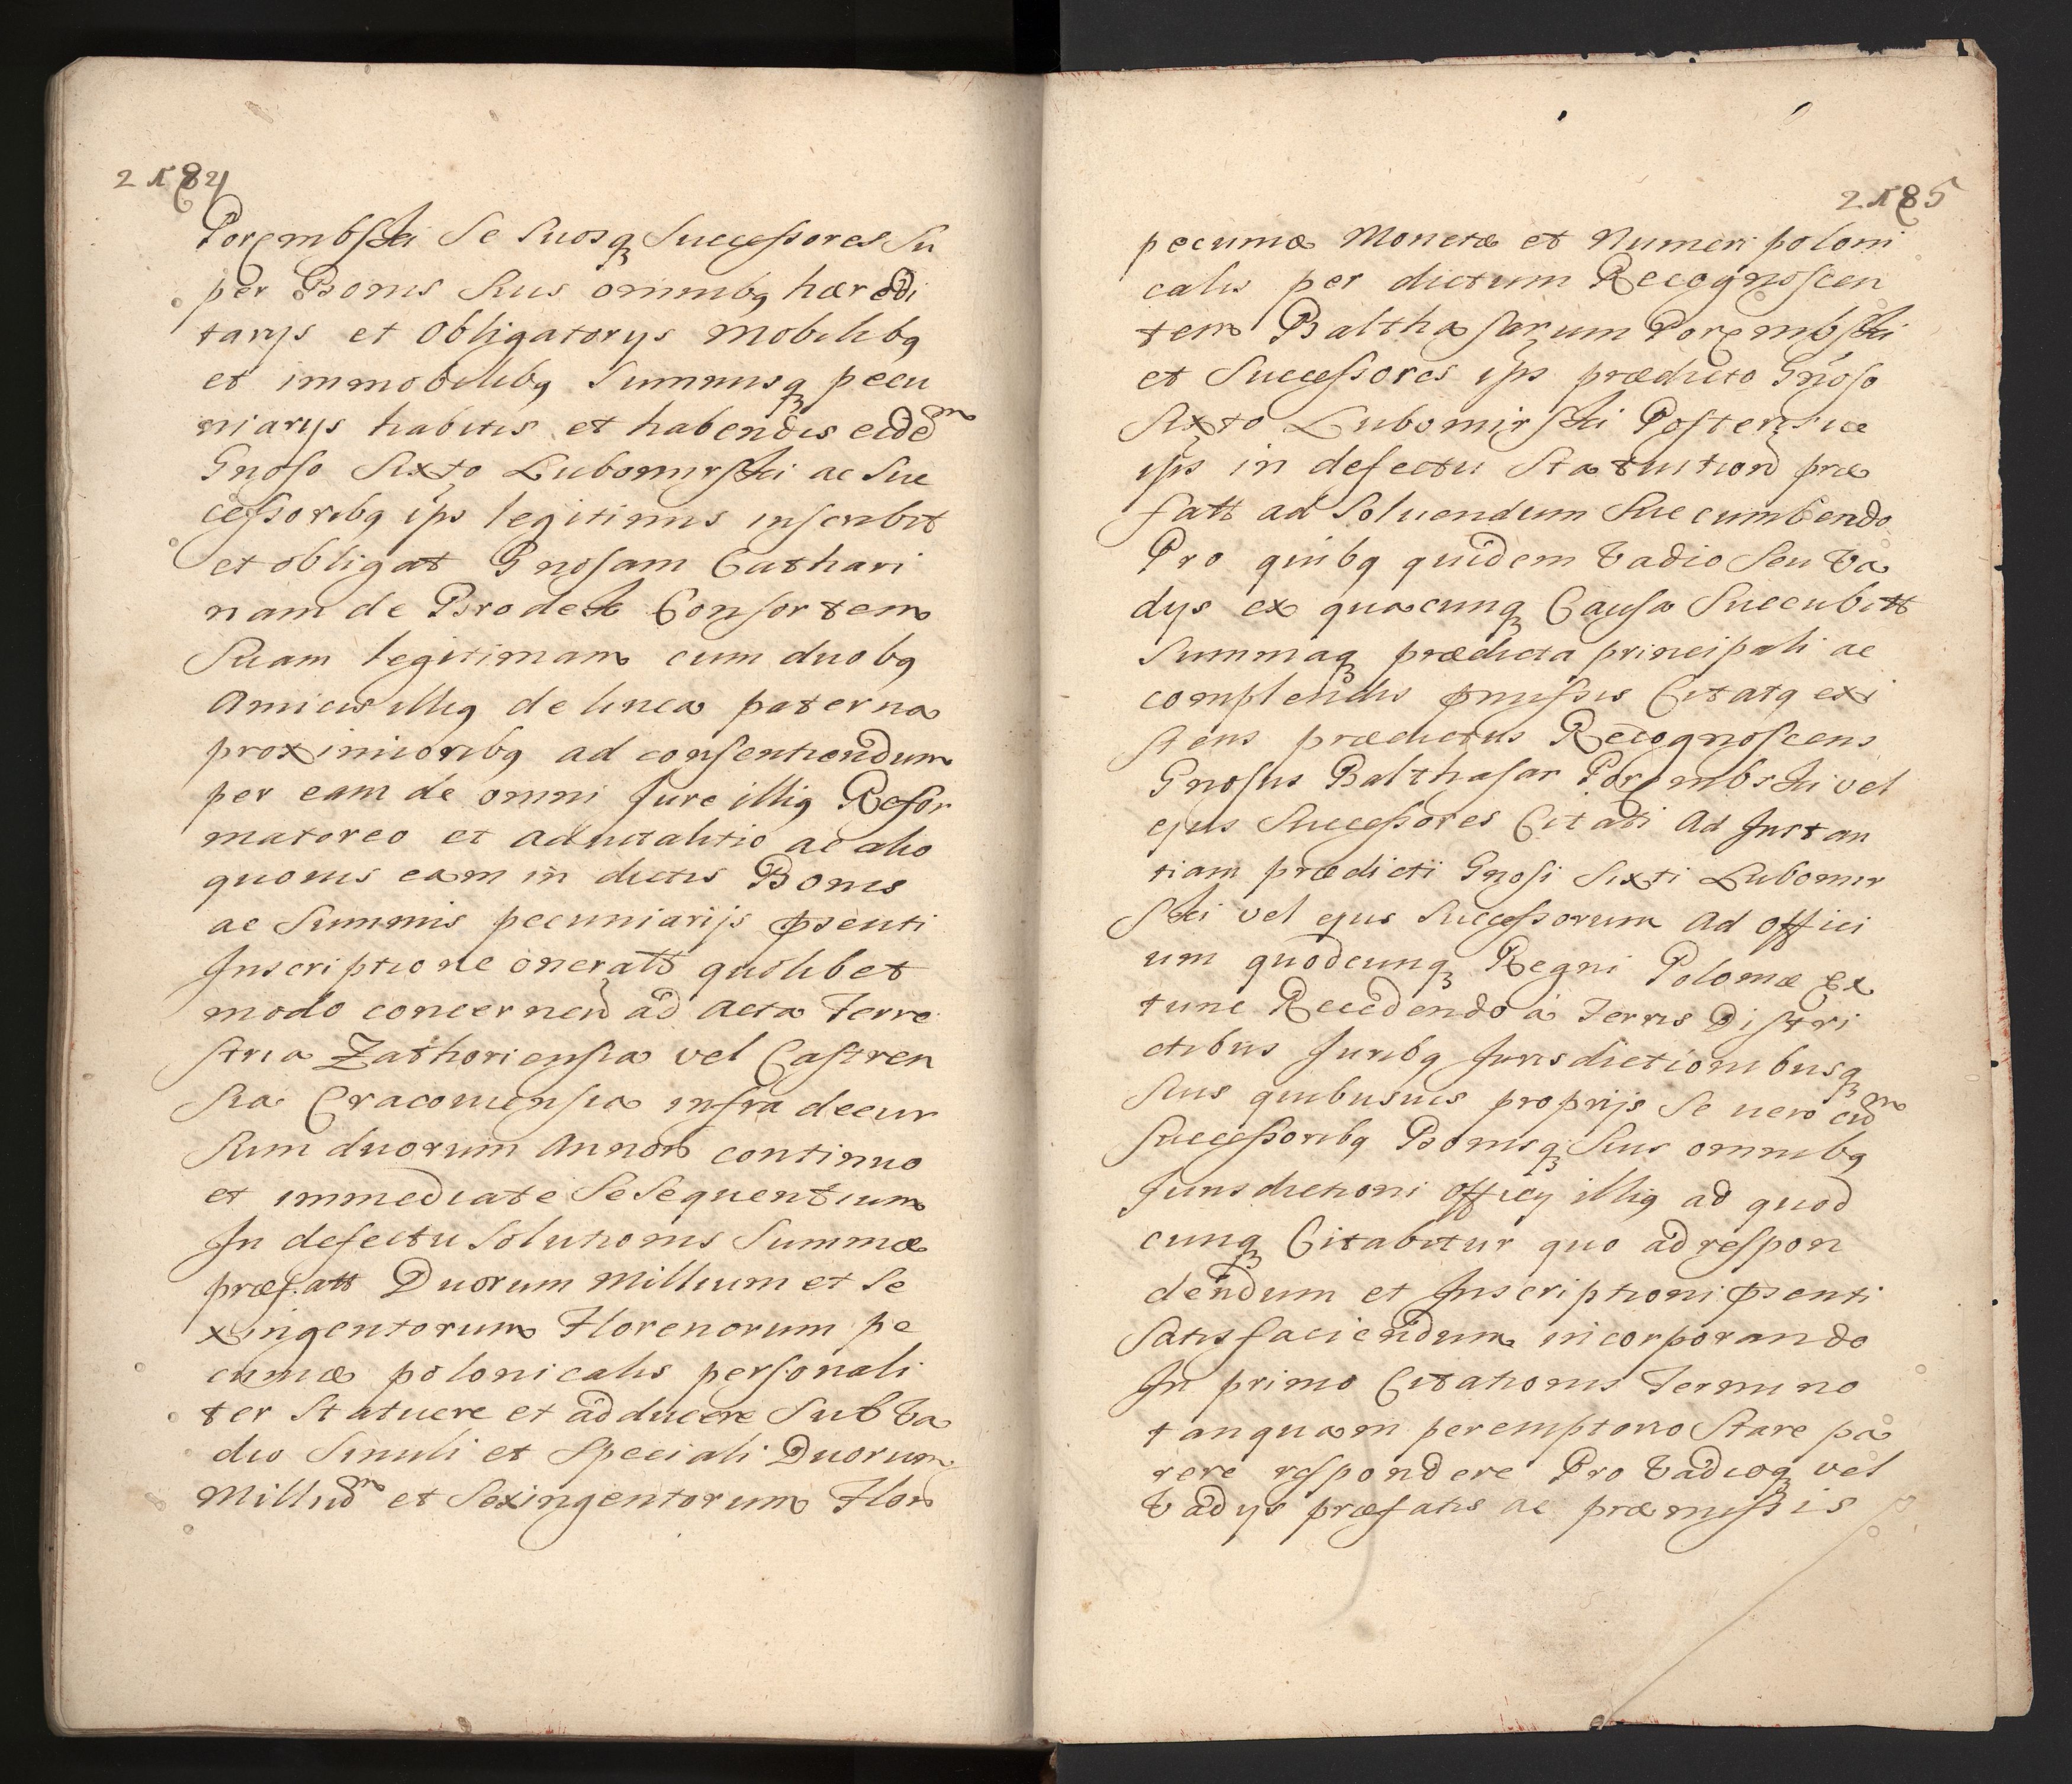 2184
Porembski Se Suosq Successores Su
per Bonis Suis omnibq hæredi
tarys et Obligatorys Mobilibq
et immobilibq Summisq pecu
niarys habitis et habendis eidem
Gnoso Sixto Lubomirski ac Suc
cessoribq ips legitimis inscribit
et obligat Gnosam Cathari
nam de Brodek Consortem
Suam legitimam cum duobq
Amicis illiq de linea paterna
proximioribq ad consentiendum
per eam de omni Jure illiq Refor
matoreo et aduitalitio ac alio
quovis eam in dictis Bonis
ac Summis pecuniarijs pnsenti
Inscriptione oneratt quolibet
modo concernen ad Acta Terre
stria Zathoriensia vel Castren
sia Cracoviensia infra decur
Sum duorum Annor continuo
et immediate Se Sequentium
In defectu Solutionis Summæ
præfatt Duorum Millium et Se
xingentorum Florenorum pe
cuniæ polonicalis personali
ter Statuere et adducere Sub Va
dio Simili et Speciali Duorum
Millium et Sexingentorum Flor
2185
pecuniæ Monetæ et Numeri poloni
calis per dictum Recognoscen
tem Balthasarum Porembski
et Successores ips prædicto Gnoso
Sixto Lubomirski Posterisue
ips in defectu Statution præ
fatt ad Soluendum Succumbendo
Pro quibq quidem Vadio Seu Va
dys ex quacunq Causa Succubitt
Summaq prædicta principali ac
complendis pmissis Citatq exi
stens prædictus Recognoscens
Gnosus Balthasar Porembski vel
ejus Successores Citati Ad Instan
tiam prædicti Gnosi Sixti Lubomir
ski vel ejus Successorum Ad Offici
um quodcunq Regni Poloniæ Ex
tunc Recedendo a Terris Distri
ctibus Juribq Jurisdictionibusq
Suis quibusuis proprijs Se uero cum
Successoribq Bonisq Suis omnibq
Jurisdictioni officy illiq ad quod
cunq Citabitur quo ad respon
dendum et Inscriptioni pnsenti
Satisfaciendum incorporando
In primo Citationis Termino
tanquam peremptorio Stare pa
rere respondere Pro Vadioq vel
Vadys præfatis ac præmissis